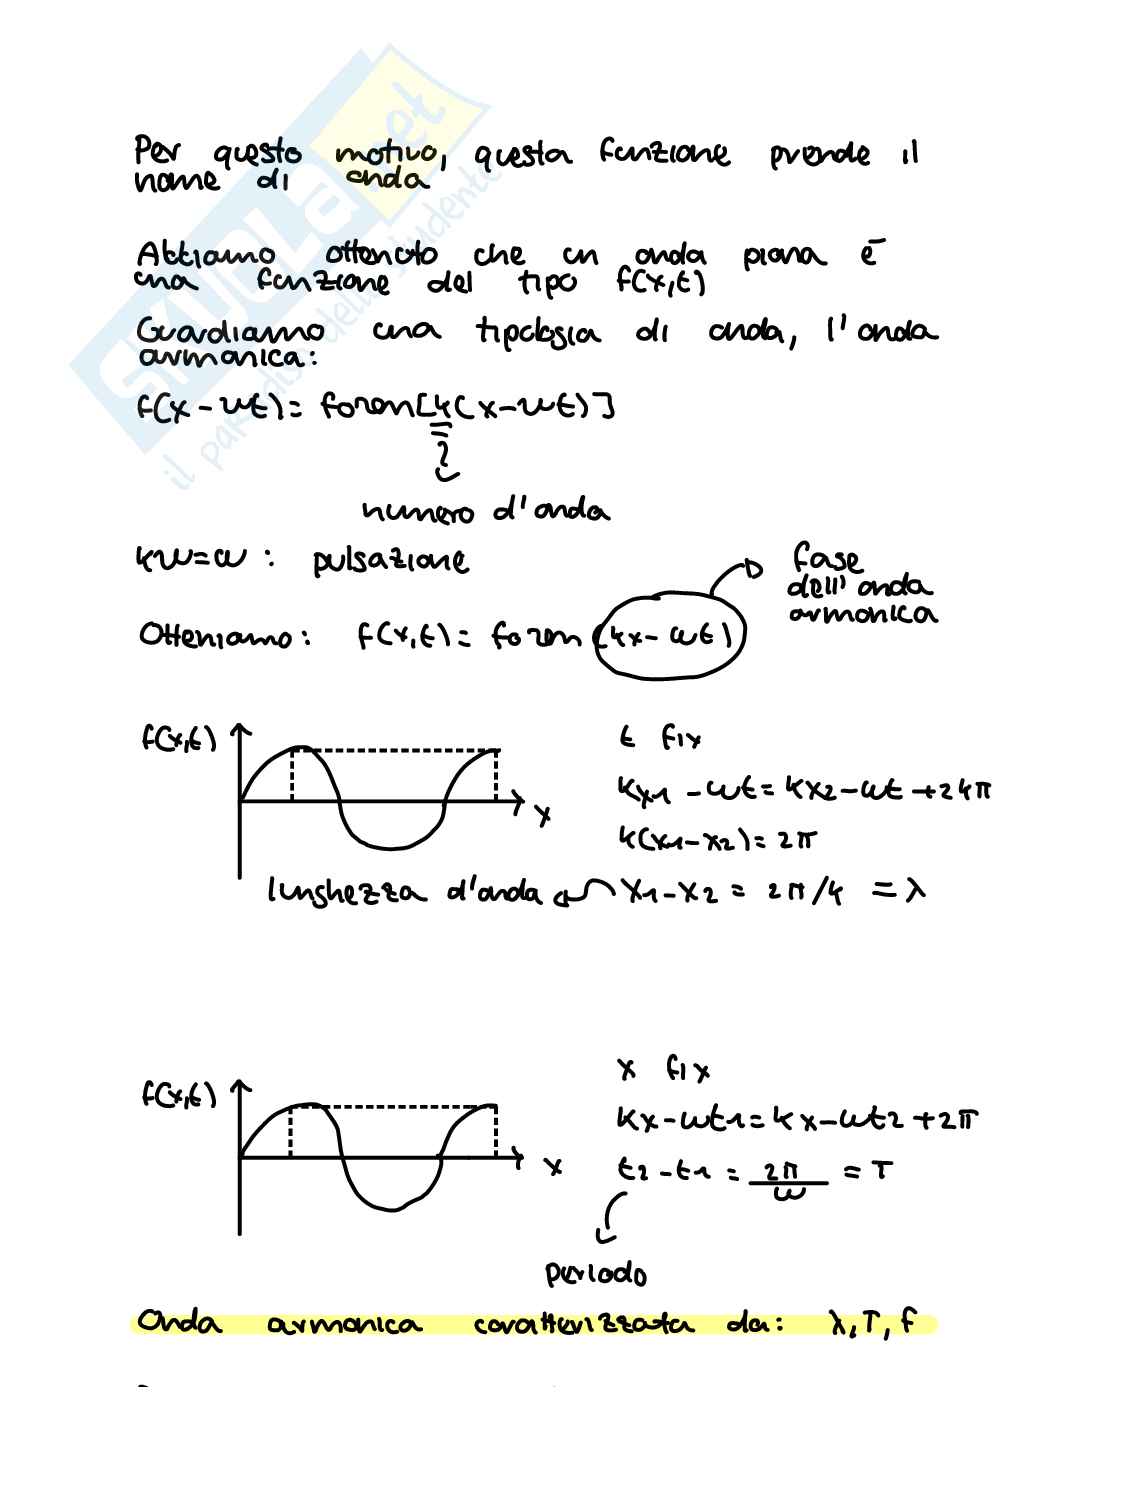 Per questo motivo, questa funzione prende il
nome di onda
Abbiamo ottenuto che un onda piana è
una funzione del tipo f(x,t)
Guardiamo una tipologia di onda, l'onda
armonica:
f(x-vt)= fosen[k(x-vt)]
numero d'onda
kv=ω: pulsazione
fase
dell'onda
armonica
Otteniamo: f(x,t)= fosen(kx-ωt)
f(x,t)
x
t fix
kx1-ωt=kx2-ωt+2kπ
k(x1-x2)=2π
lunghezza d'onda x1-x2=2π/k =λ
f(x,t)
x
x fix
kx-ωt1=kx-ωt2+2π
t2-t1=2π/ω=T
periodo
Onda armonica caratterizzata da: λ,T,f
SKUOLA.net
il paradiso dello studente